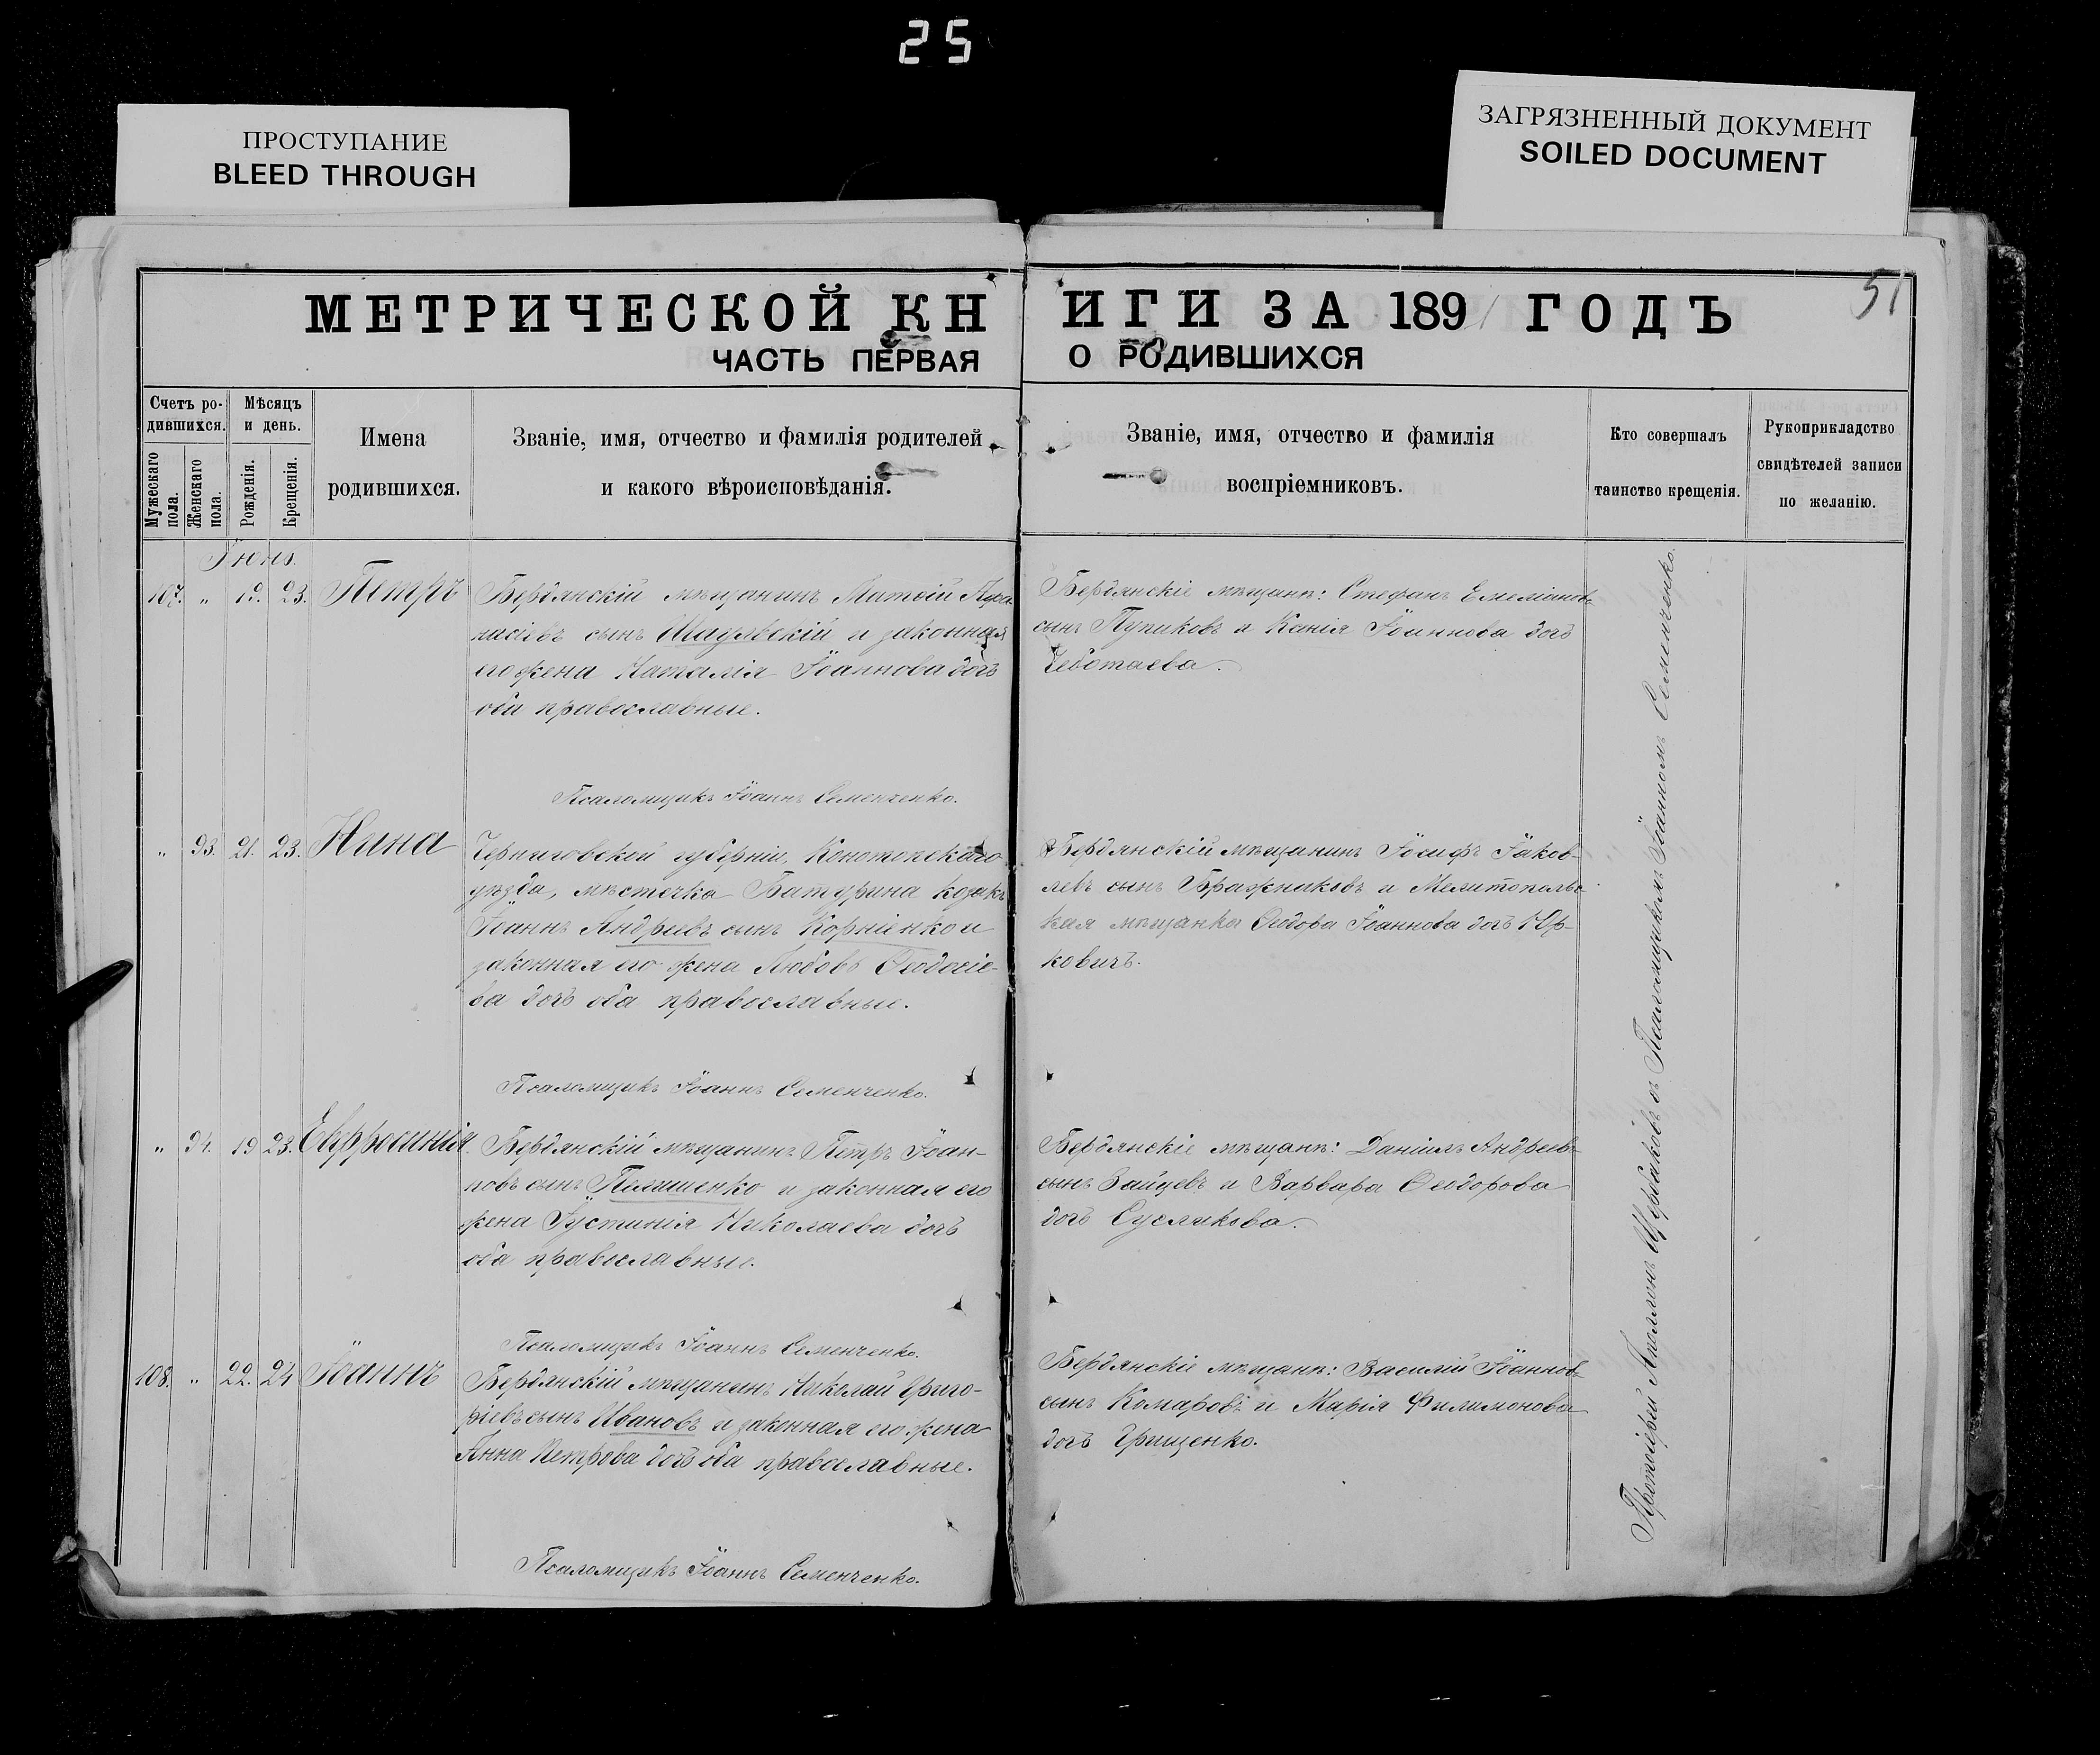 25
ПРОСТУПАНИЕ
BLEED THROUGH
ЗАГРЯЗНЕННЫЙ ДОКУМЕНТ
SOILED DOCUMENT
51
МЕТРИЧЕСКОЙ КНИГИ ЗА 1891 ГОДЪ
ЧАСТЬ ПЕРВАЯ О РОДИВШИХСЯ
Счетъ родившихся.
Мужескаго пола.
Женскаго пола.
Мѣсяцъ и день.
Рожденія.
Крещенія.
Имена
родившихся.
Званіе, имя, отчество и фамилія родителей
и какого вѣроисповѣданія.
Званіе, имя, отчество и фамилія
воспріемниковъ.
Кто совершалъ
таинство крещенія.
Рукоприкладство
свидѣтелей записи
по желанію.
Іюнь.
107. " 19. 23. Петръ
Бердянскій мѣщанинъ Матѳій
сынъ и законная
его жена Наталія Іоаннова дочь
оба православные.
Псаломщикъ Іоаннъ Семенченко.
Бердянскіе мѣщане: Стефанъ Емеліановъ
сынъ Пупиковъ и Ксенія Іоаннова дочь
Чеботаева.
" 93. 21. 23. Нина
Черниговской губерніи, Конотопскаго
уѣзда, мѣстечка Батурина козакъ
Іоаннъ Андреевъ сынъ Корніенко и
законная его жена Любовь Ѳеодосіе-
ва дочь оба православные.
Псаломщикъ Іоаннъ Семенченко.
Бердянскій мѣщанинъ Іосифъ Іаков-
левъ сынъ Бражниковъ и Мелитопольс-
кая мѣщанка Ѳеодора Іоаннова дочь Юр-
ковичъ.
" 94. 19 23. Евфросинія.
Бердянскій мѣщанинъ Петръ Іоан-
новъ сынъ Пелишенко и законная его
жена Іустинія Николаева дочь
оба православные.
Псаломщикъ Іоаннъ Семенченко.
Бердянскіе мѣщане: Даніилъ Андреевъ
сынъ Зайцевъ и Варвара Ѳеодорова
дочь Суслікова.
108. " 22. 24 Іоаннъ
Бердянскій мѣщанинъ Николай Григо-
ріевъ сынъ Ивановъ и законная его жена
Анна Петрова дочь оба православные.
Псаломщикъ Іоаннъ Семенченко.
Бердянскіе мѣщане: Василій Іоанновъ
сынъ Комаровъ и Марія Филимонова
дочь Грищенко.
Протоіерей Аполлонъ Щербаковъ съ Псаломщикомъ Іоанномъ Семенченко.